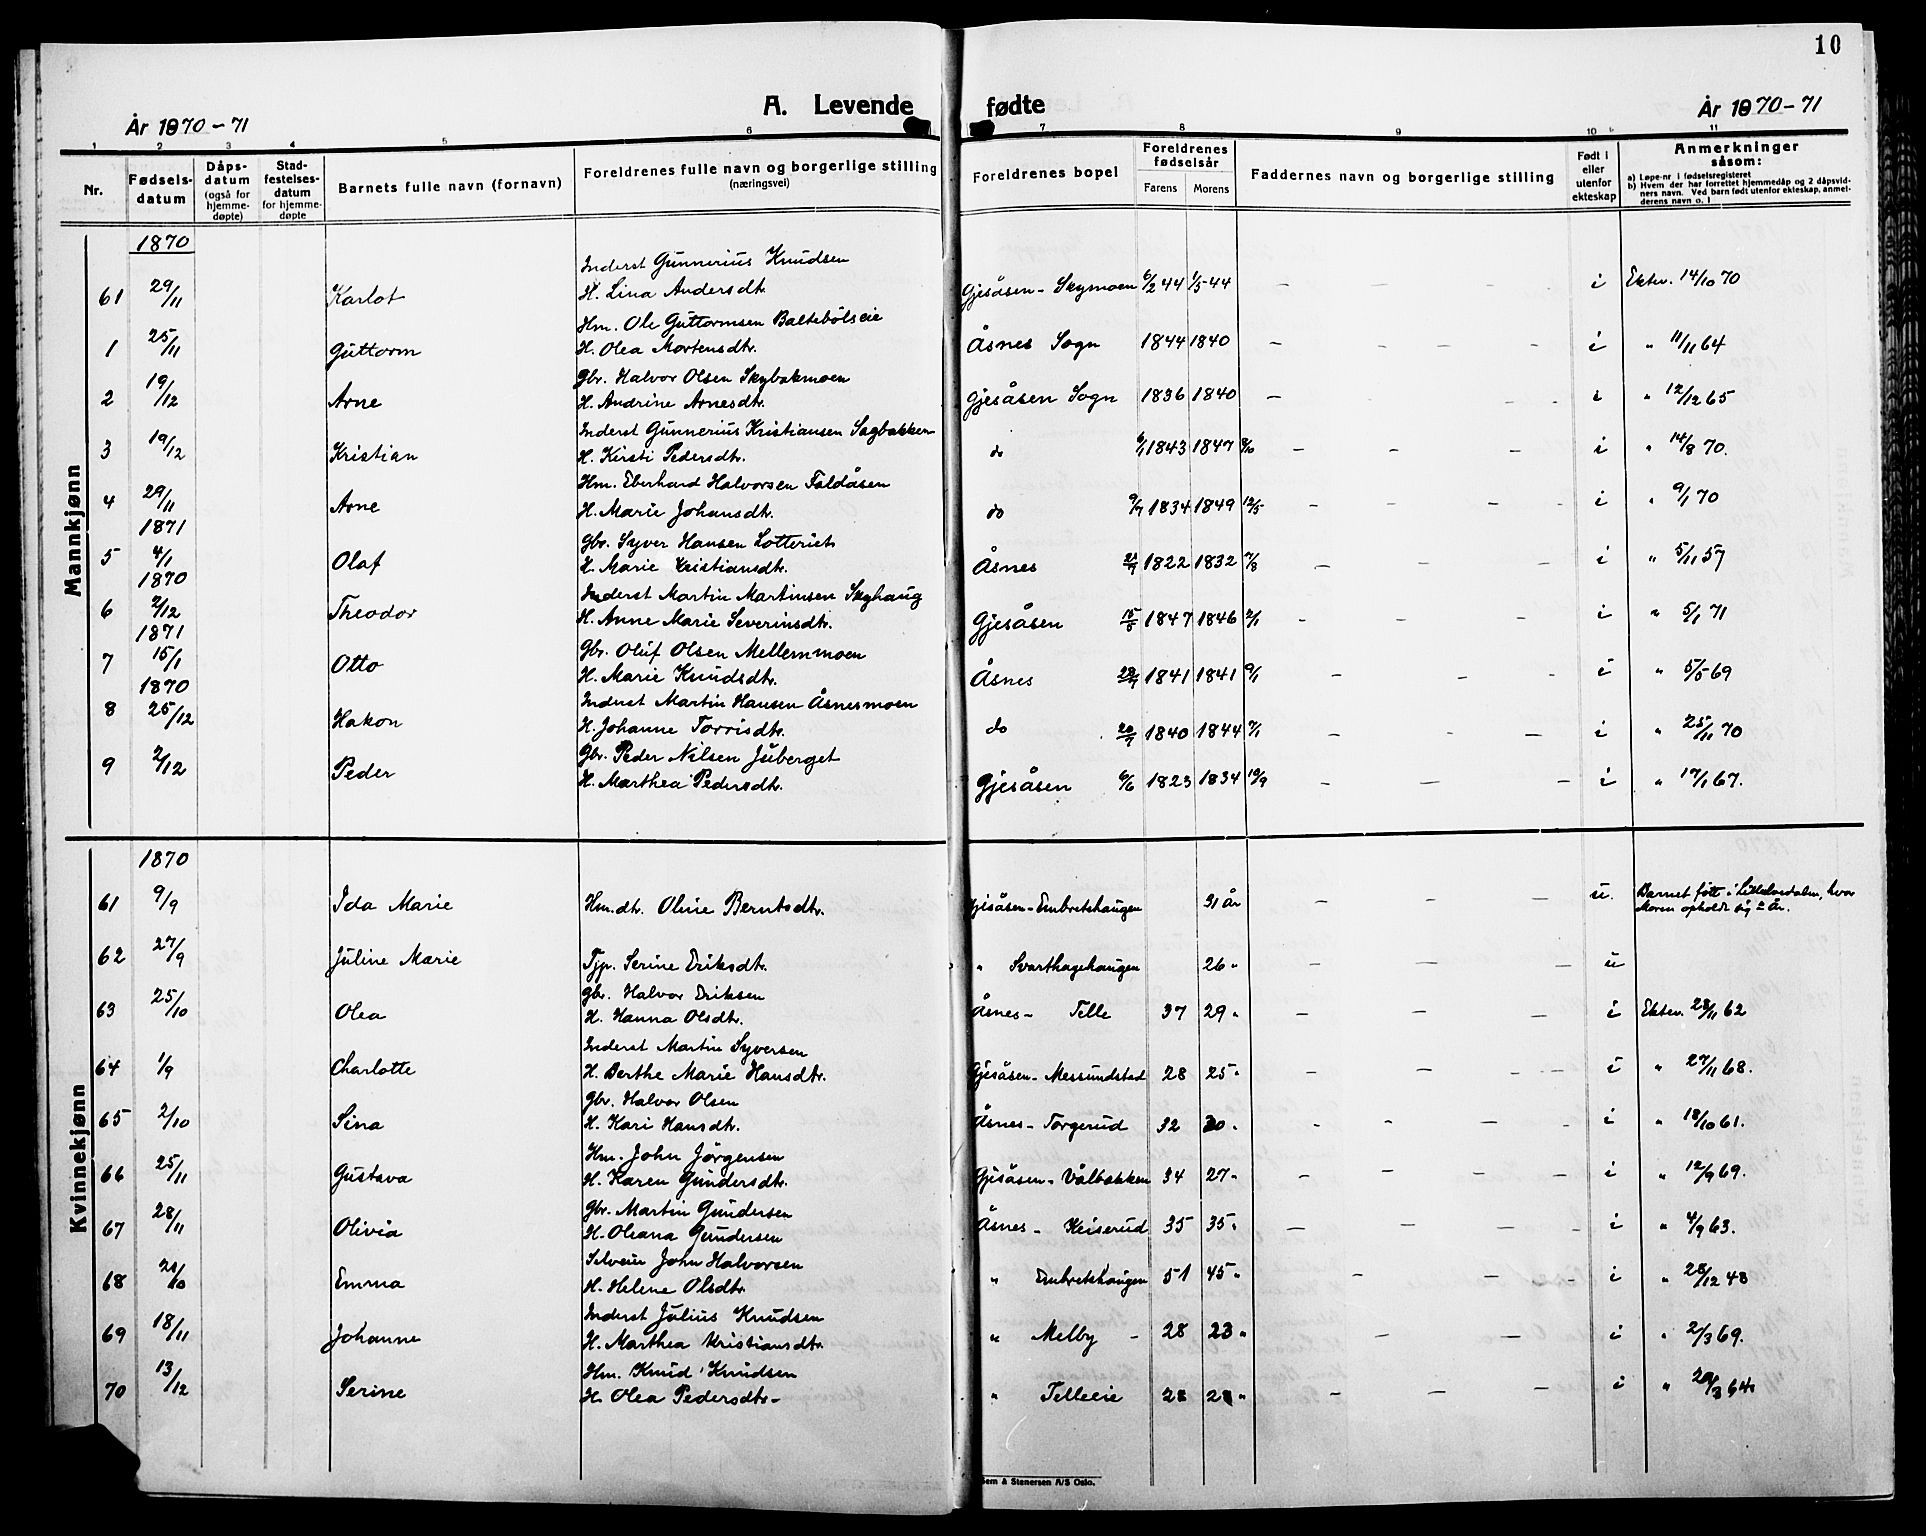 10
A. Levende fødte
År 1870-71
År 1870-71
1 2 3 4 5 6 7 8 9 10 11
Nr. Fødselsdatum Dåpsdatum (også for hjemmedøpte) Stadfestelsesdatum for hjemmedøpte Barnets fulle navn (fornavn) Foreldrenes fulle navn og borgerlige stilling (næringsvei) Foreldrenes bopel Foreldrenes fødselsår Farens Morens Faddernes navn og borgerlige stilling Født i eller utenfor ekteskap Anmerkninger såsom:
a) Løpe-nr i fødselsregisteret
b) Hvem der har forrettet hjemmedåp og 2 dåpsvidners navn. Ved barn født utenfor ekteskap, anmelderens navn o. l
Mannkjønn
1870
Inderst Gunnerius Knudsen
61 29/11 Karlot H. Lina Andersdtr. Gjesåsen - Skymoen 6/2 44 1/5-44 - - - - i Ektev. 14/10 70
Hm. Ole Guttormsen Baltebölseie
1 25/11 Guttorm H. Olea Mortensdtr. Åsnes Sogn 1844 1840 - - - - i " 11/11 64
Gbr. Halvor Olsen Skybakmoen
2 19/12 Arne H. Andrine Arnesdtr. Gjesåsen Sogn 1836 1840 - - - i " 12/12 65
Inderst Gunnerius Kristiansen Sagbakken
3 19/12 Kristian H. Kirsti Pedersdtr. do 6/1 1843 1847 8/10 - - - i " 14/8 70.
Hm. Eberhard Halvorsen Faldåsen
4 29/11 Arne H. Marie Johansdtr. do 9/7 1834 1849 12/5 - - - - i " 9/1 70
1871
Gbr. Syver Hansen Lotteriet
5 4/1 Olaf H. Marie Kristiansdtr. Åsnes 1822 1832 7/8 - - - - i " 5/11 57
1870
Inderst Martin Martinsen Skyhaug
6 2/12 Theodor H. Anne Marie Severinsdtr. Gjesåsen 15/8 1847 1846 2/1 - - - - i " 5/1 71
1871
Gbr. Oluf Olsen Mellemmoen
7 15/1 Otto H. Marie Knudsdtr. Åsnes 1841 1841 9/1 - - - i " 5/5 69
1870
Inderst Martin Hansen Åsnesmoen
8 25/12 Hakon H. Johanne Torrisdtr. do 20/7 1840 1844 7/1 - - - i " 25/11 70
Gbr. Peder Nilsen Juberget
9 2/12 Peder H. Marthea Pedersdtr. Gjesåsen 6/6 1823 1834 10/9 - - - i " 17/1 67.
Kvinnekjønn
1870
61 9/9 Ida Marie Hm.dtr. Oline Berntsdtr. Gjesåsen - Embretshaugen 31 år - - - - u. Barnet født i Lilleelvedalen, hvor
Moren opholdt sig år.
62 27/9 Juline Marie Tjp. Serine Eriksdtr. " Svarthagehaugen 26 " - - - u
Gbr. Halvor Eriksen
63 25/10 Olea H. Hanna Olsdtr. Åsnes - Telle 37 29 " - - - - i Ektev. 23/11 62
Inderst Martin Syversen
64 1/9 Charlotte H. Berthe Marie Hansdtr. Gjesåsen - Messundstad 28 25 " - - - - i " 27/11 68.
Gbr. Halvor Olsen
65 2/10 Sina H. Kari Hansdtr. Åsnes - Torgerud 32 30 " - - - - i " 18/10 61.
Hm. John Jörgensen
66 25/11 Gustava H. Karen Gundersdtr. Gjesåsen - Vålbakken 34 27 " - - - - i " 12/9 69.
Gbr. Martin Gundersen
67 28/11 Olivia H. Oleana Gundersen Åsnes - Keiserud 35 35 " - - - - i " 4/9 63.
Selveier John Halvorsen
68 Emma H. Helene Olsdtr. " Embretshaugen 51 45 " - - - i " 28/12 48
Inderst Julius Knudsen
69 18/11 Johanne H. Marthea Kristiansdtr. " Melby - 28 23 " - - - i " 2/3 69.
Hm. Knud Knudsen
70 13/12 Serine H. Olea Pedersdtr - " Telleeie 28 28 " - - - - i " 20/3 64.
Sem & Stenersen A/S Oslo.